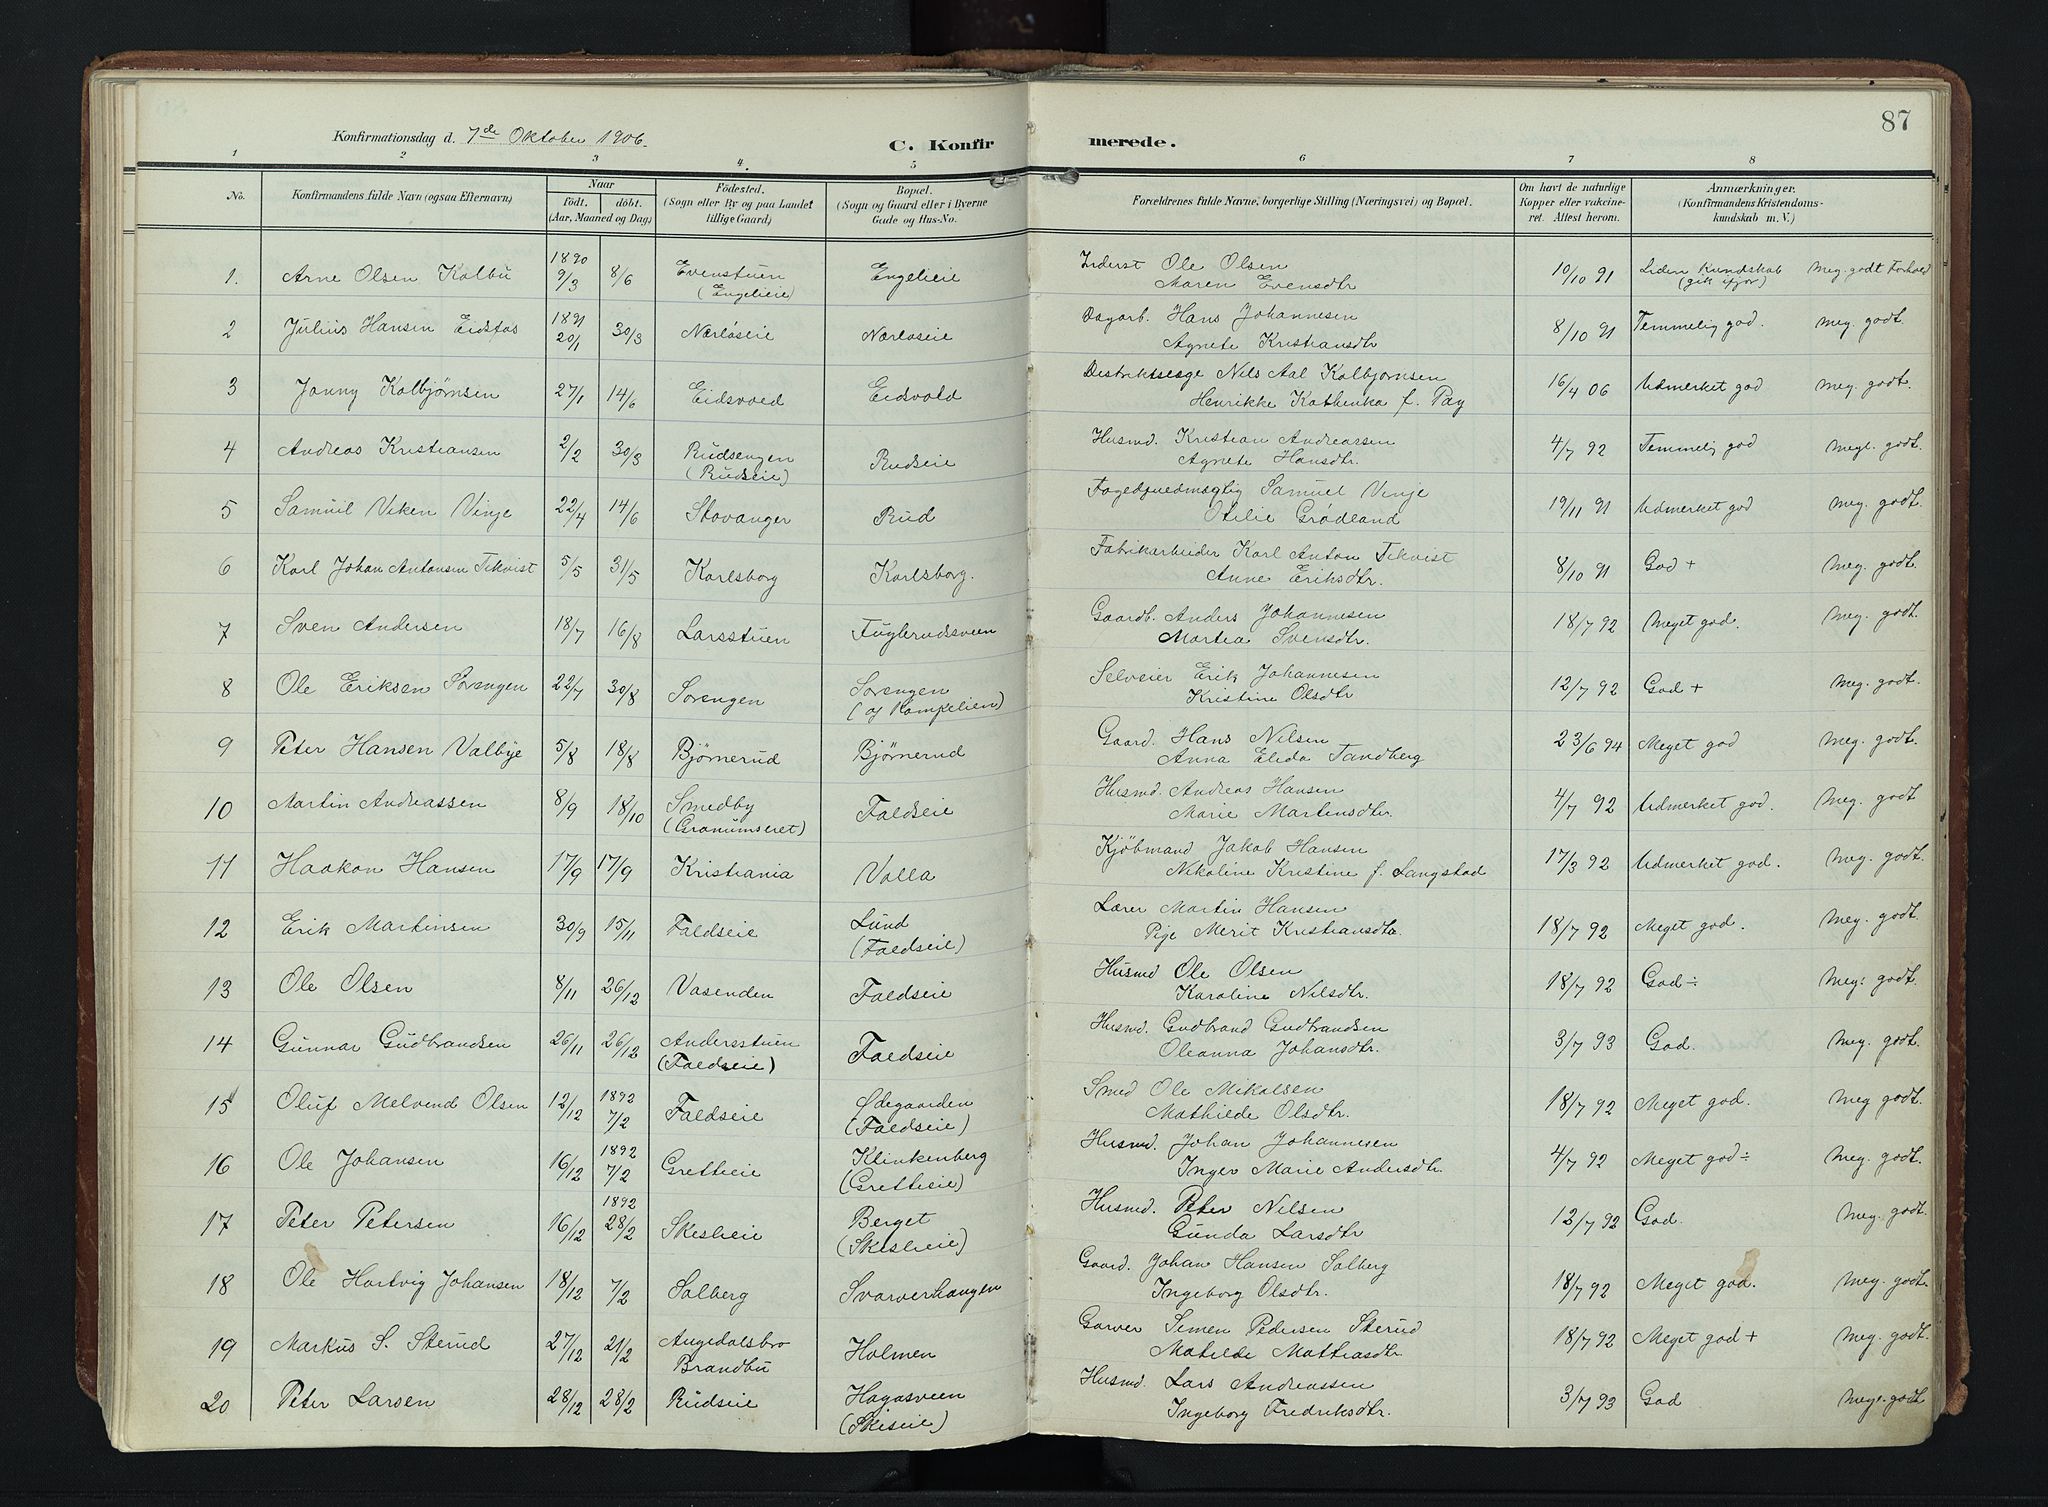 87
Konfirmationsdag d. 7de Oktober 1906.
C. Konfirmerede.
1 2 3 4. 5 6 7 8
No. Konfirmandens fulde Navn (ogsaa Efternavn) Naar født. døbt. (Aar, Maaned og Dag) Fødested. (Sogn eller By og paa Landet tillige Gaard) Bopæl. (Sogn og Gaard eller i Byerne Gade og Hus-No. Forældrenes fulde Navne, borgerlige Stilling (Næringsvei) og Bopæl. Om havt de naturlige Kopper eller vakcineret. Attest herom. Anmærkninger. (Konfirmandens Kristendomskundskab m. V.)
1. Arne Olsen Kolbu 1890 9/3 8/6 Evenstuen (Engelieie) Engelieie Inderst Ole Olsen Maren Evensdtr 10/10 91 Liden Kundskab (gik ifjor) Meg. godt Forhold
2 Julius Hansen Eidsfos 1891 20/1 30/3 Nærløseie Nærløseie Dagarb. Hans Johannesen Agnete Kristiansdtr 8/10 91 Temmelig god. Meg. godt.
3 Jonny Kolbjørnsen 27/1 14/6 Eidsvold Eidsvold Distriktslæge Nils Aal Kolbjørnsen Henrikke Kathenka f. Pay 16/4 06 Udmerket god Meg. godt.
4 Andreas Kristiansen 2/2 30/3 Rudsengen (Rudseie) Rudseie Husmd. Kristian Andreassen Agnete Hansdtr. 4/7 92 Temmelig god Meg. godt.
5 Samuel Viken Vinje 22/4 14/6 Stavanger Rud Fogedfuldmægtig Samuel Vinje Otilie Grødland 19/11 91 Udmerket god Meg. godt.
6 Karl Johan Antonsen Tekvist 5/5 31/5 Karlsborg Karlsborg. Fabrikarbeider Karl Anton Tekvist Anne Eriksdtr. 8/10 91 God + Meg. godt.
7 Sven Andersen 18/7 16/8 Larsstuen Fuglerudsveen Gaardb. Anders Johannesen Martea Svensdtr. 18/7 92 Meget god. Meg. godt
8 Ole Eriksen Sorengen 22/7 30/8 Sorengen Sorengen (af Kompelien) Selveier Erik Johannesen Kristine Olsdtr 12/7 92 God + Meg. godt.
9 Peter Hansen Valbye 5/8 18/8 Bjørnerud Bjørnerud Gaard. Hans Nilsen Anna Elida Tandberg 23/6 94 Meget god Meg. godt.
10 Martin Andreassen 8/9 18/10 Smedby (Granumseret) Faldseie Husmd. Andreas Hansen Marie Martinsdtr. 4/7 92 Udmerket god. Meg. godt
11 Haakon Hansen 17/9 17/9 Kristiania Volla Kjöbmand Jakob Hansen Nikoline Kristine f. Langstad 17/3 92 Udmerket god. Meg. godt
12 Erik Martinsen 30/9 15/11 Faldseie Lund (Faldseie) Lærer Martin Hansen Pige Merit Kristiansdtr. 18/7 92 Meget god. Meg. godt.
13 Ole Olsen 8/11 26/12 Vasenden Faldseie Husmd Ole Olsen Karoline Nilsdtr. 18/7 92 God ÷ Meg. godt.
14 Gunnar Gudbrandsen 26/11 26/12 Andersstuen (Faldseie) Faldseie Husmd. Gudbrand Gudbrandsen Oleanna Johansdtr. 3/7 93 God. Meg. godt.
15 Oluf Melvend Olsen 12/12 1892 7/2 Faldseie Ødegaarden (Faldseie) Smed Ole Mikalsen Mathilde Olsdtr. 18/7 92 Meget god. Meg godt.
16 Ole Johansen 16/12 1892 7/2 Gretteeie Klinkenberg (Gretteeie) Husmd. Johan Johannesen Inger Marie Andersdtr. 4/7 92 Meget god ÷ Meg. godt.
17 Peter Petersen 16/12 1892 28/2 Skeslieie Berget (Skeslieie) Husmd. Peter Nilsen Gunda Larsdtr 12/7 92 God. Meg. godt.
18 Ole Hartvig Johansen 18/12 7/2 Solberg Svarverhaugen Gaard. Johan Hansen Solberg Ingeborg Olsdtr. 18/7 92 Meget god. Meg. godt.
19 Markus S. Sterud 27/12 21/2 Augedalsbro Brandbu Holmen Garver Simen Pedersen Sterud Matilde Mathiasdtr. 18/7 92 Meget god + Meg. godt.
20 Peter Larsen 28/12 28/2 Rudseie Hagasveen (Skiseie) Husmd. Lars Andreassen Ingeborg Fredriksdtr. 3/7 93 God Meg. godt